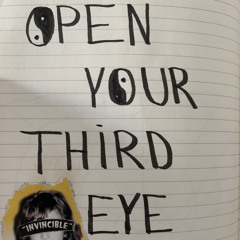 OPEN
YOUR
THiRD
"INVINCIBLE"
EYE